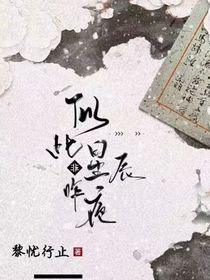 似此星辰非昨夜
黎忧行止 著